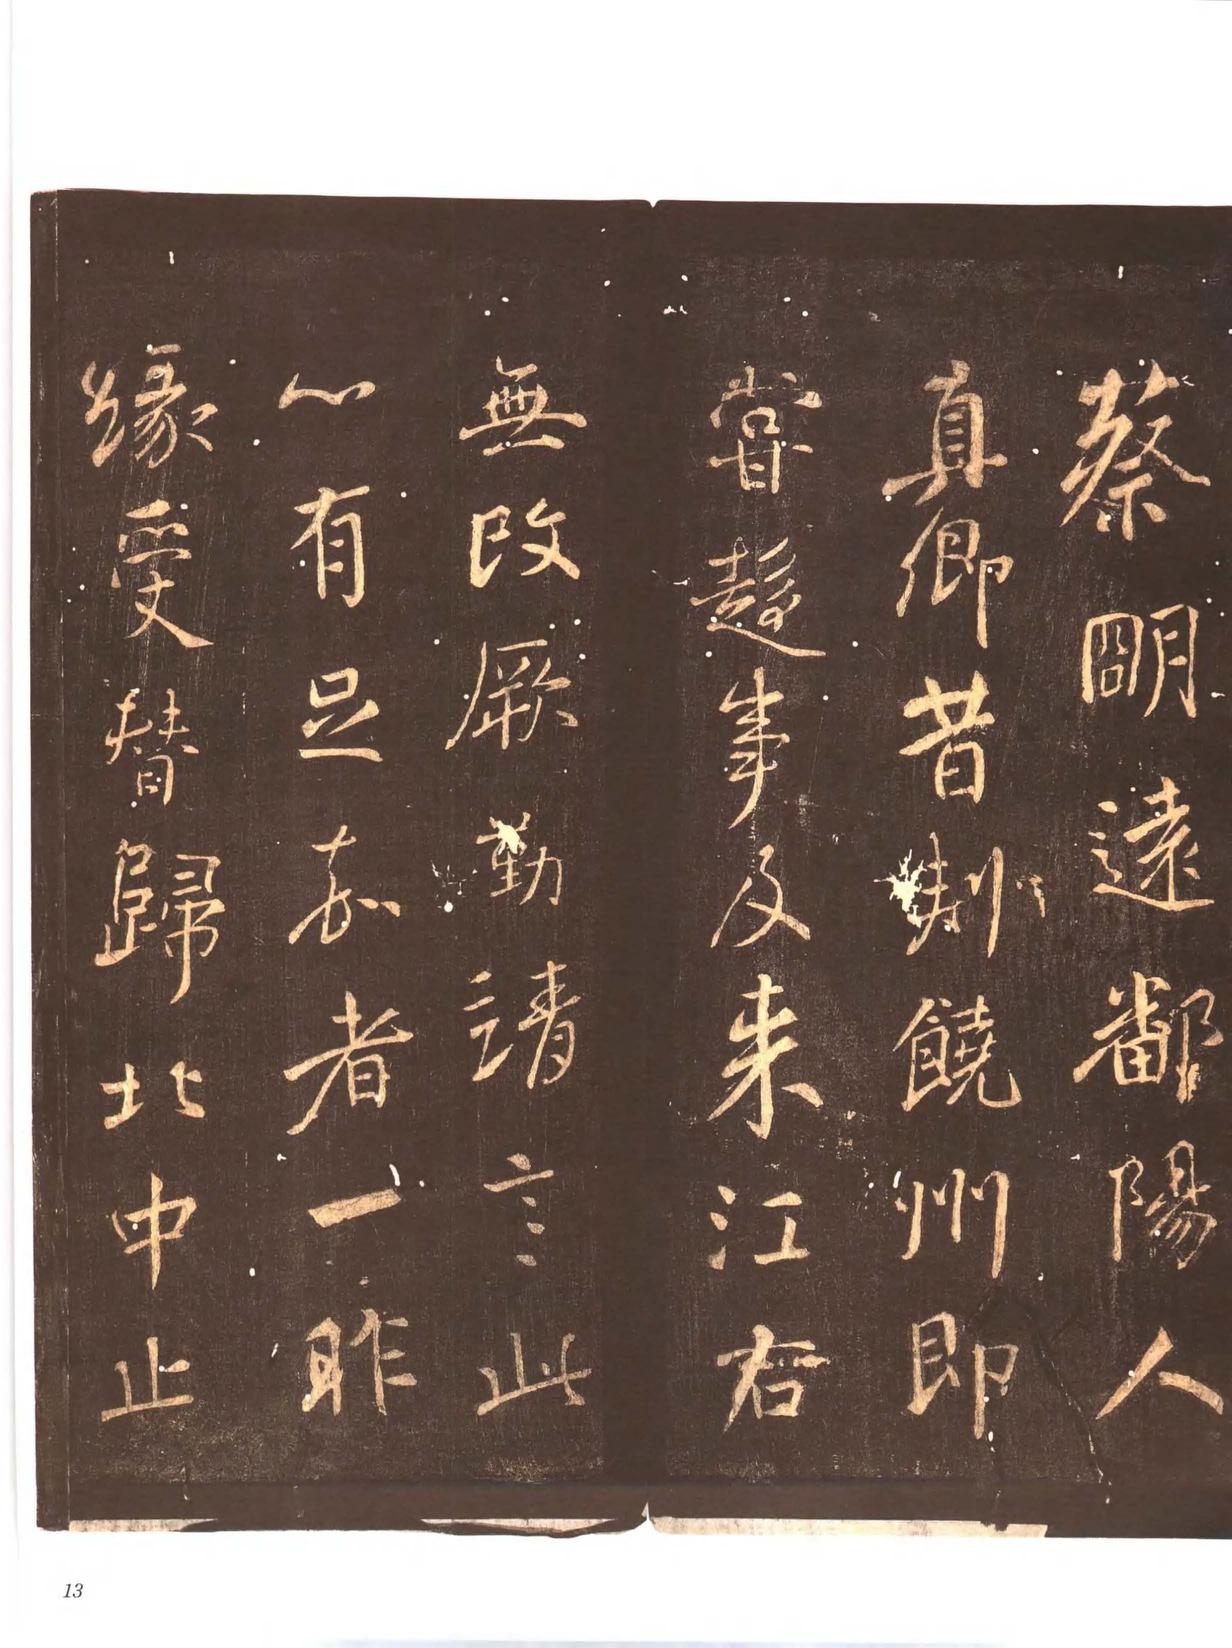 蔡明遠鄱陽人
真卿昔刺饒州即
嘗趨事及来江右
無改厥勤靖言此
心有足嘉者一昨
緣受替歸北中止
13